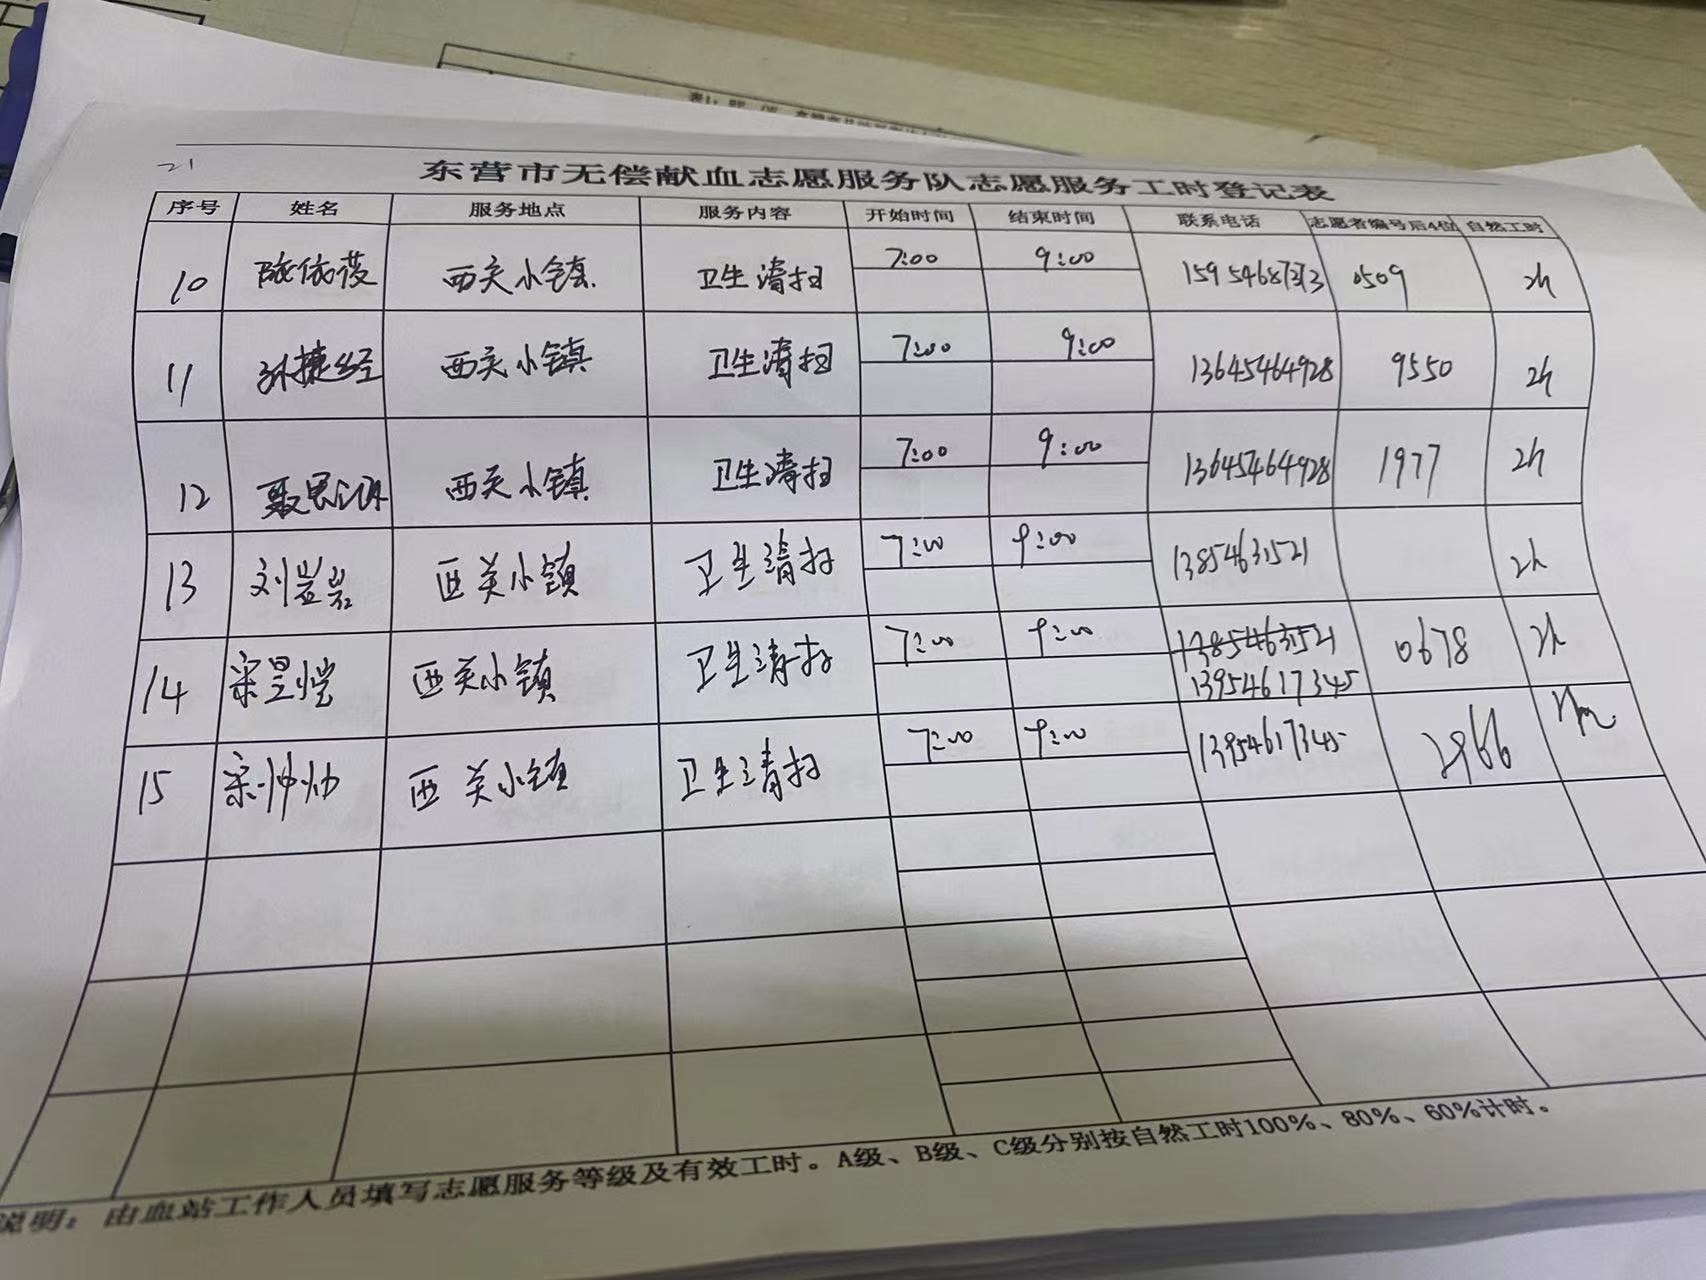 21
东营市无偿献血志愿服务队志愿服务工时登记表
序号 姓名 服务地点 服务内容 开始时间 结束时间 联系电话 志愿者编号后4位 自然工时
10 西关小镇 卫生清扫 7:00 9:00 0509 2h
11 孙捷经 西关小镇 卫生清扫 7:00 9:00 13645464928 9550 2h
12 西关小镇 卫生清扫 7:00 9:00 13645464928 1977 2h
13 刘岩岩 西关小镇 卫生清扫 7:00 9:00 13854631521 2h
14 宋昱恺 西关小镇 卫生清扫 7:00 9:00 13854631521 0678 2h
13954617345
15 宋帅帅 西关小镇 卫生清扫 7:00 9:00 13954617345 2966
说明：由血站工作人员填写志愿服务等级及有效工时。A级、B级、C级分别按自然工时100%、80%、60%计时。